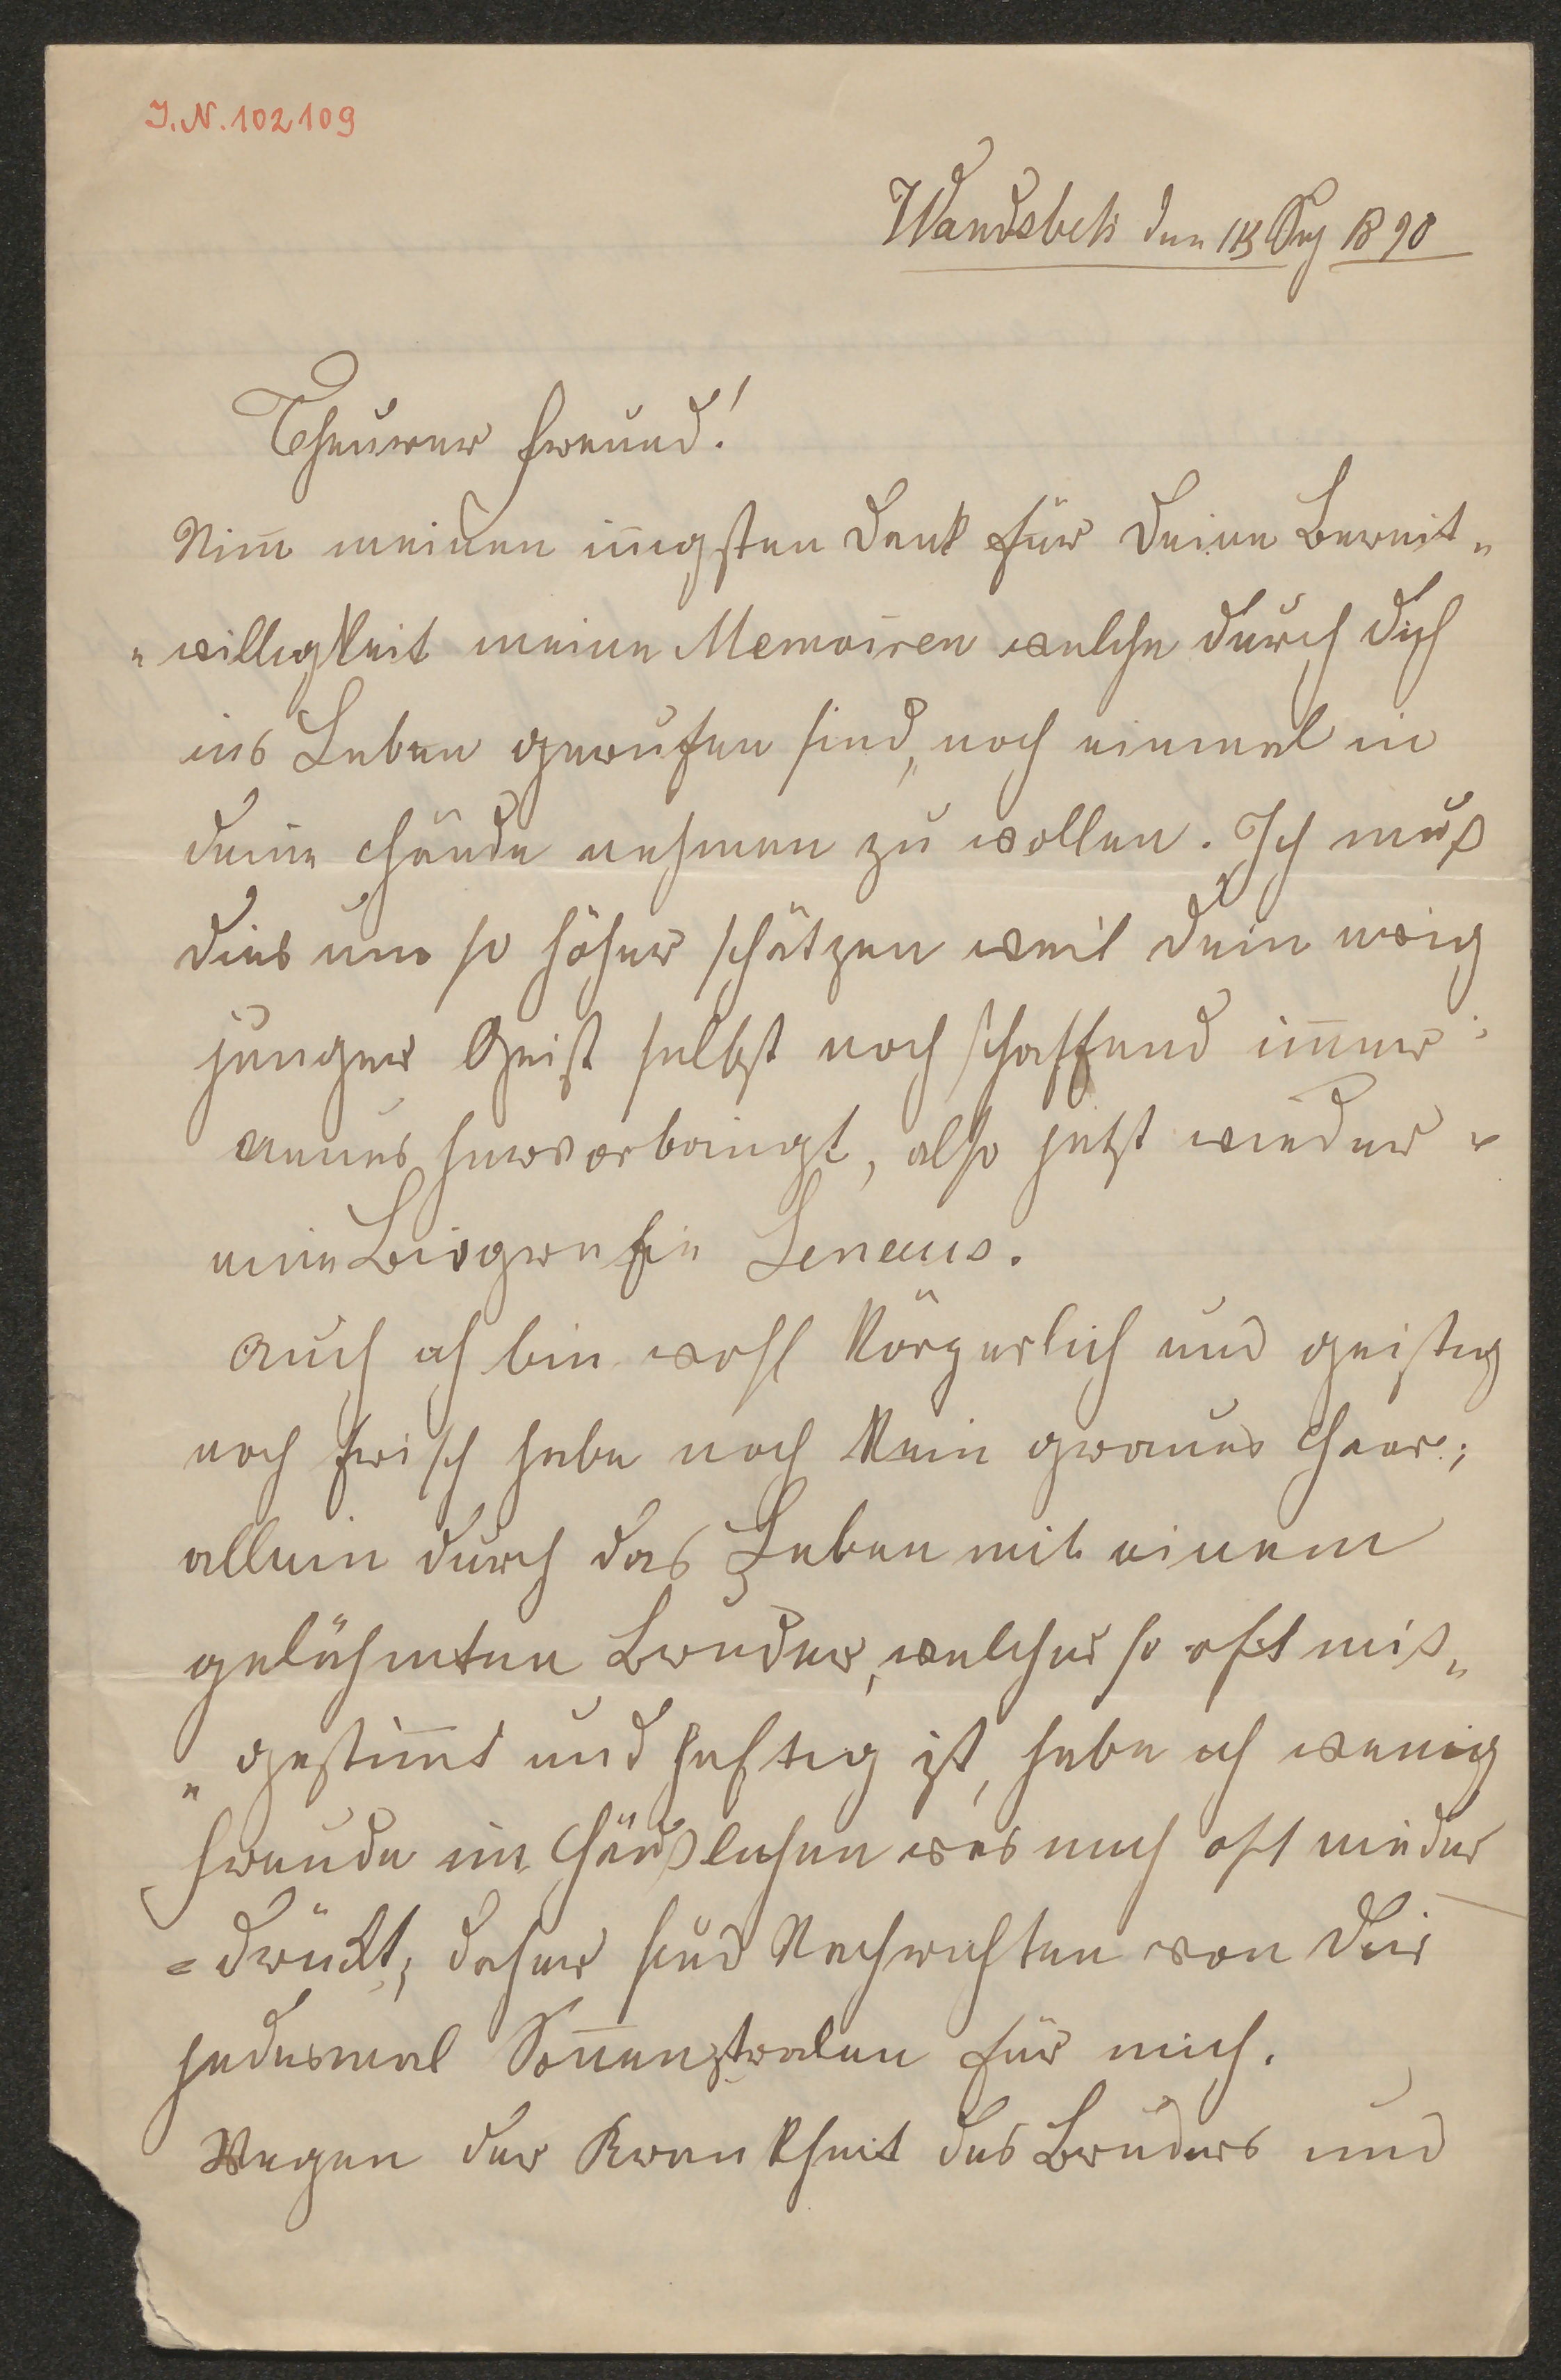 I. N. 102109
Wandsbek den 1890
Theurer Freund!
Nim̄ meinen in̄igsten Dank für Deine Bereit„
„willigkeit meine Memoiren welche durch Dich
ins Leben gerufen sind, noch einmal in
Deine Hände nehmen zu wollen. Ich muß
dies um so höher schätzen weil Dein ewig
junger Geist selbst noch schaffend im̄er
neues hervorbringt, also jetzt wieder
eine Biografie Lenaus.
Auch ich bin wohl körperlich und geistig
noch frisch habe noch kein graues Haar;
allein durch das Leben mit einem
gelähmten Bruder, welcher so oft miß„
„gestim̄t und heftig ist, habe ich wenig
Freude im Häußlichen was mich oft nieder
=drückt; daher sind Nachrichten von Dir
jedesmal Son̄enstralen für mich.
Wegen der Krankheit des Bruders und